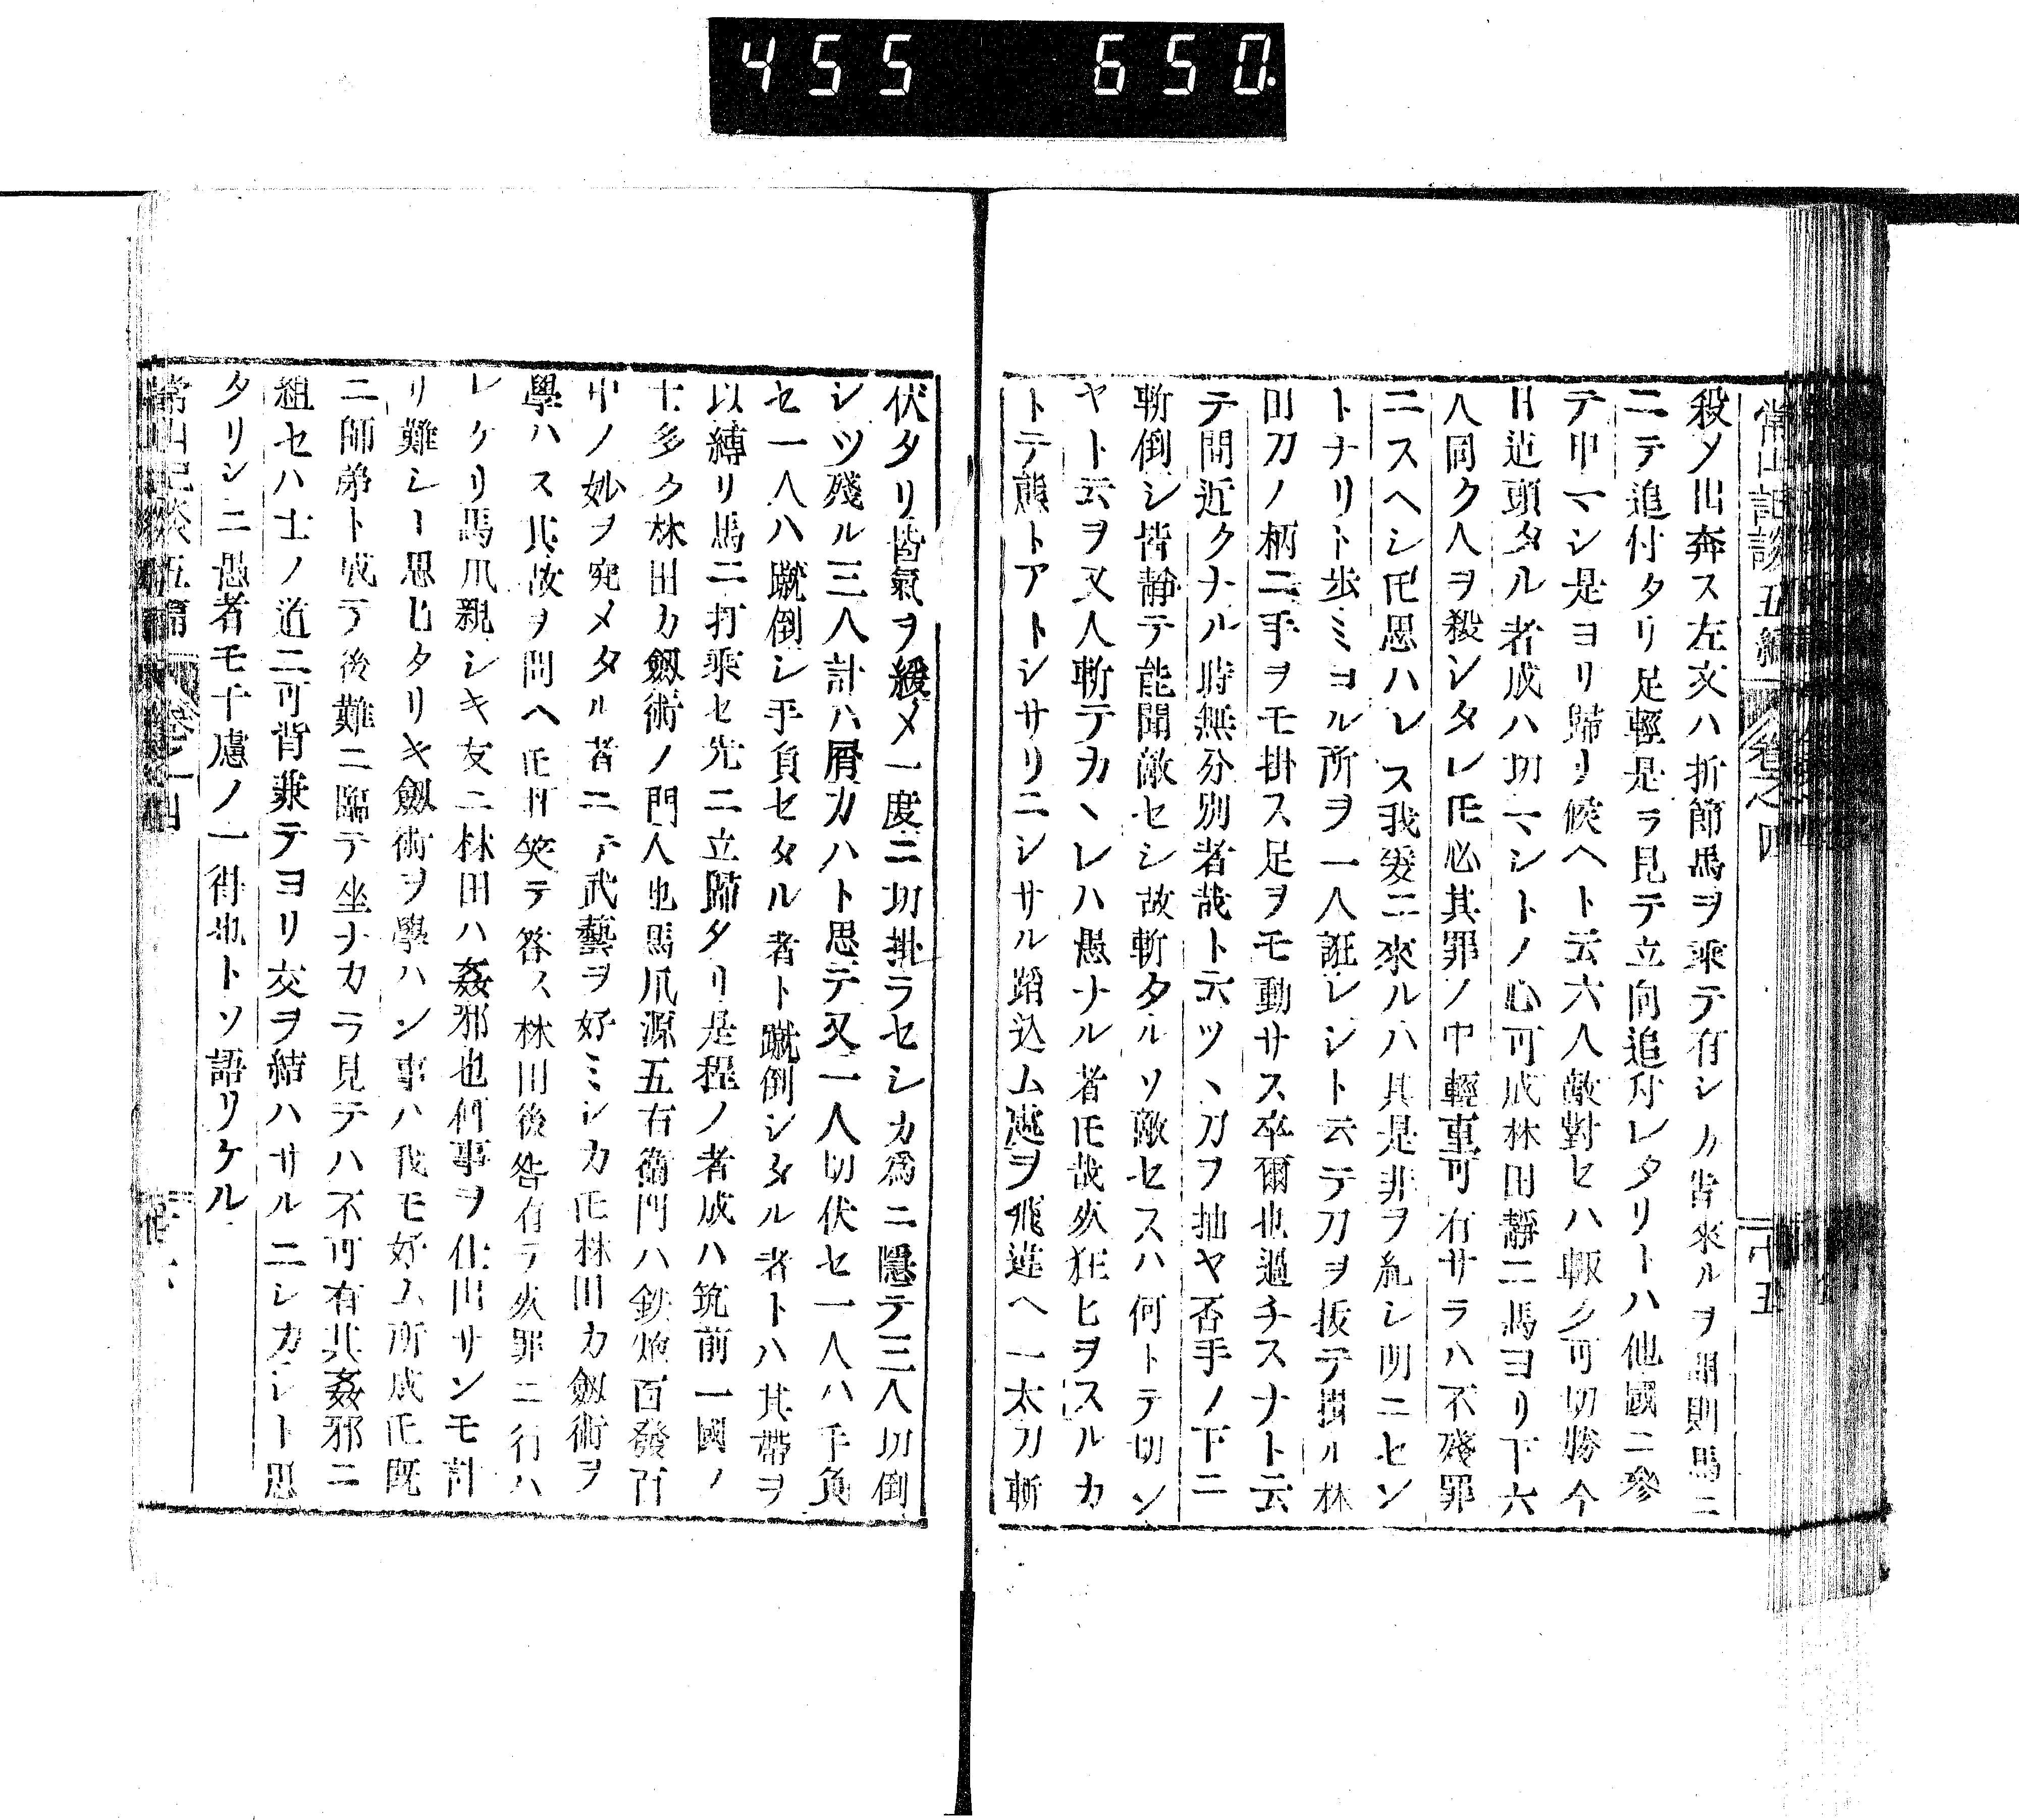 455 650.
常山記談五編 卷之四 十五
殺シ出奔ス左文ハ折節馬ヲ乘テ有シカ皆來ルヲ聞則馬ニ
ニテ追付タリ足輕是ヲ見テ立向追付レタリトハ他國ニ參
テ申マシ是ヨリ歸リ候ヘト云六人敵對セハ輙ク可切勝今
日迠頭タル者成ハ切マシトノ心可成林田靜ニ馬ヨリ下六
人同ク人ヲ殺シタレ𪜈必其罪ノ中輕重可有サラハ不殘罪
ニスヘシ𪜈思ハレス我爰ニ來ルハ具是非ヲ糺シ明ニセン
トナリト歩ミヨル所ヲ一人誑レシト云テ刀ヲ拔テ掛ル林
田刀ノ柄ニ手ヲモ掛ス足ヲモ動サス卒爾也過チスナト云
テ間近クナル時無分別者哉ト云ツヽ刀ヲ抽ヤ否手ノ下ニ
斬倒シ皆靜テ能聞敵セシ故斬タルソ敵セスハ何トテ切ン
ヤト云ヲ又人斬テカヽレハ愚ナル者𪜈哉火狂ヒヲスルカ
トテ熊トアトシサリニシサル蹈込ム處ヲ飛違ヘ一太刀斬
伏タリ皆氣ヲ緩メ一度ニ切掛ラセシカ爲ニ隱テ三人切倒
シツ殘ル三人計ハ屑カハト思テ又一人切伏セ一人ハ手負
セ一人ハ蹴倒シ手負セタル者ト蹴倒シタル者トハ其帶ヲ
以縛リ馬ニ打乘セ先ニ立歸タリ是程ノ者成ハ筑前一國ノ
士多ク林田カ劔術ノ門人也馬爪源五右衞門ハ鉄炮百發百
中ノ妙ヲ究メタル者ニテ武藝ヲ好ミシカ𪜈林田カ劔術ヲ
學ハス其故ヲ問ヘ𪜈打笑テ答ス林田後咎有テ火罪ニ行ハ
レケリ馬爪親シキ友ニ林田ハ姦邪也何事ヲ仕出サンモ計
リ難シト思ヒタリキ劔術ヲ學ハン事ハ我モ好ム所成𪜈既
ニ師弟ト成テ後難ニ臨テ坐ナカラ見テハ不可有其姦邪ニ
組セハ士ノ道ニ可背兼テヨリ交ヲ結ハサルニシカシト思
タリシニ愚者モ千慮ノ一得也トソ語リケル
常山記談五篇 卷之四